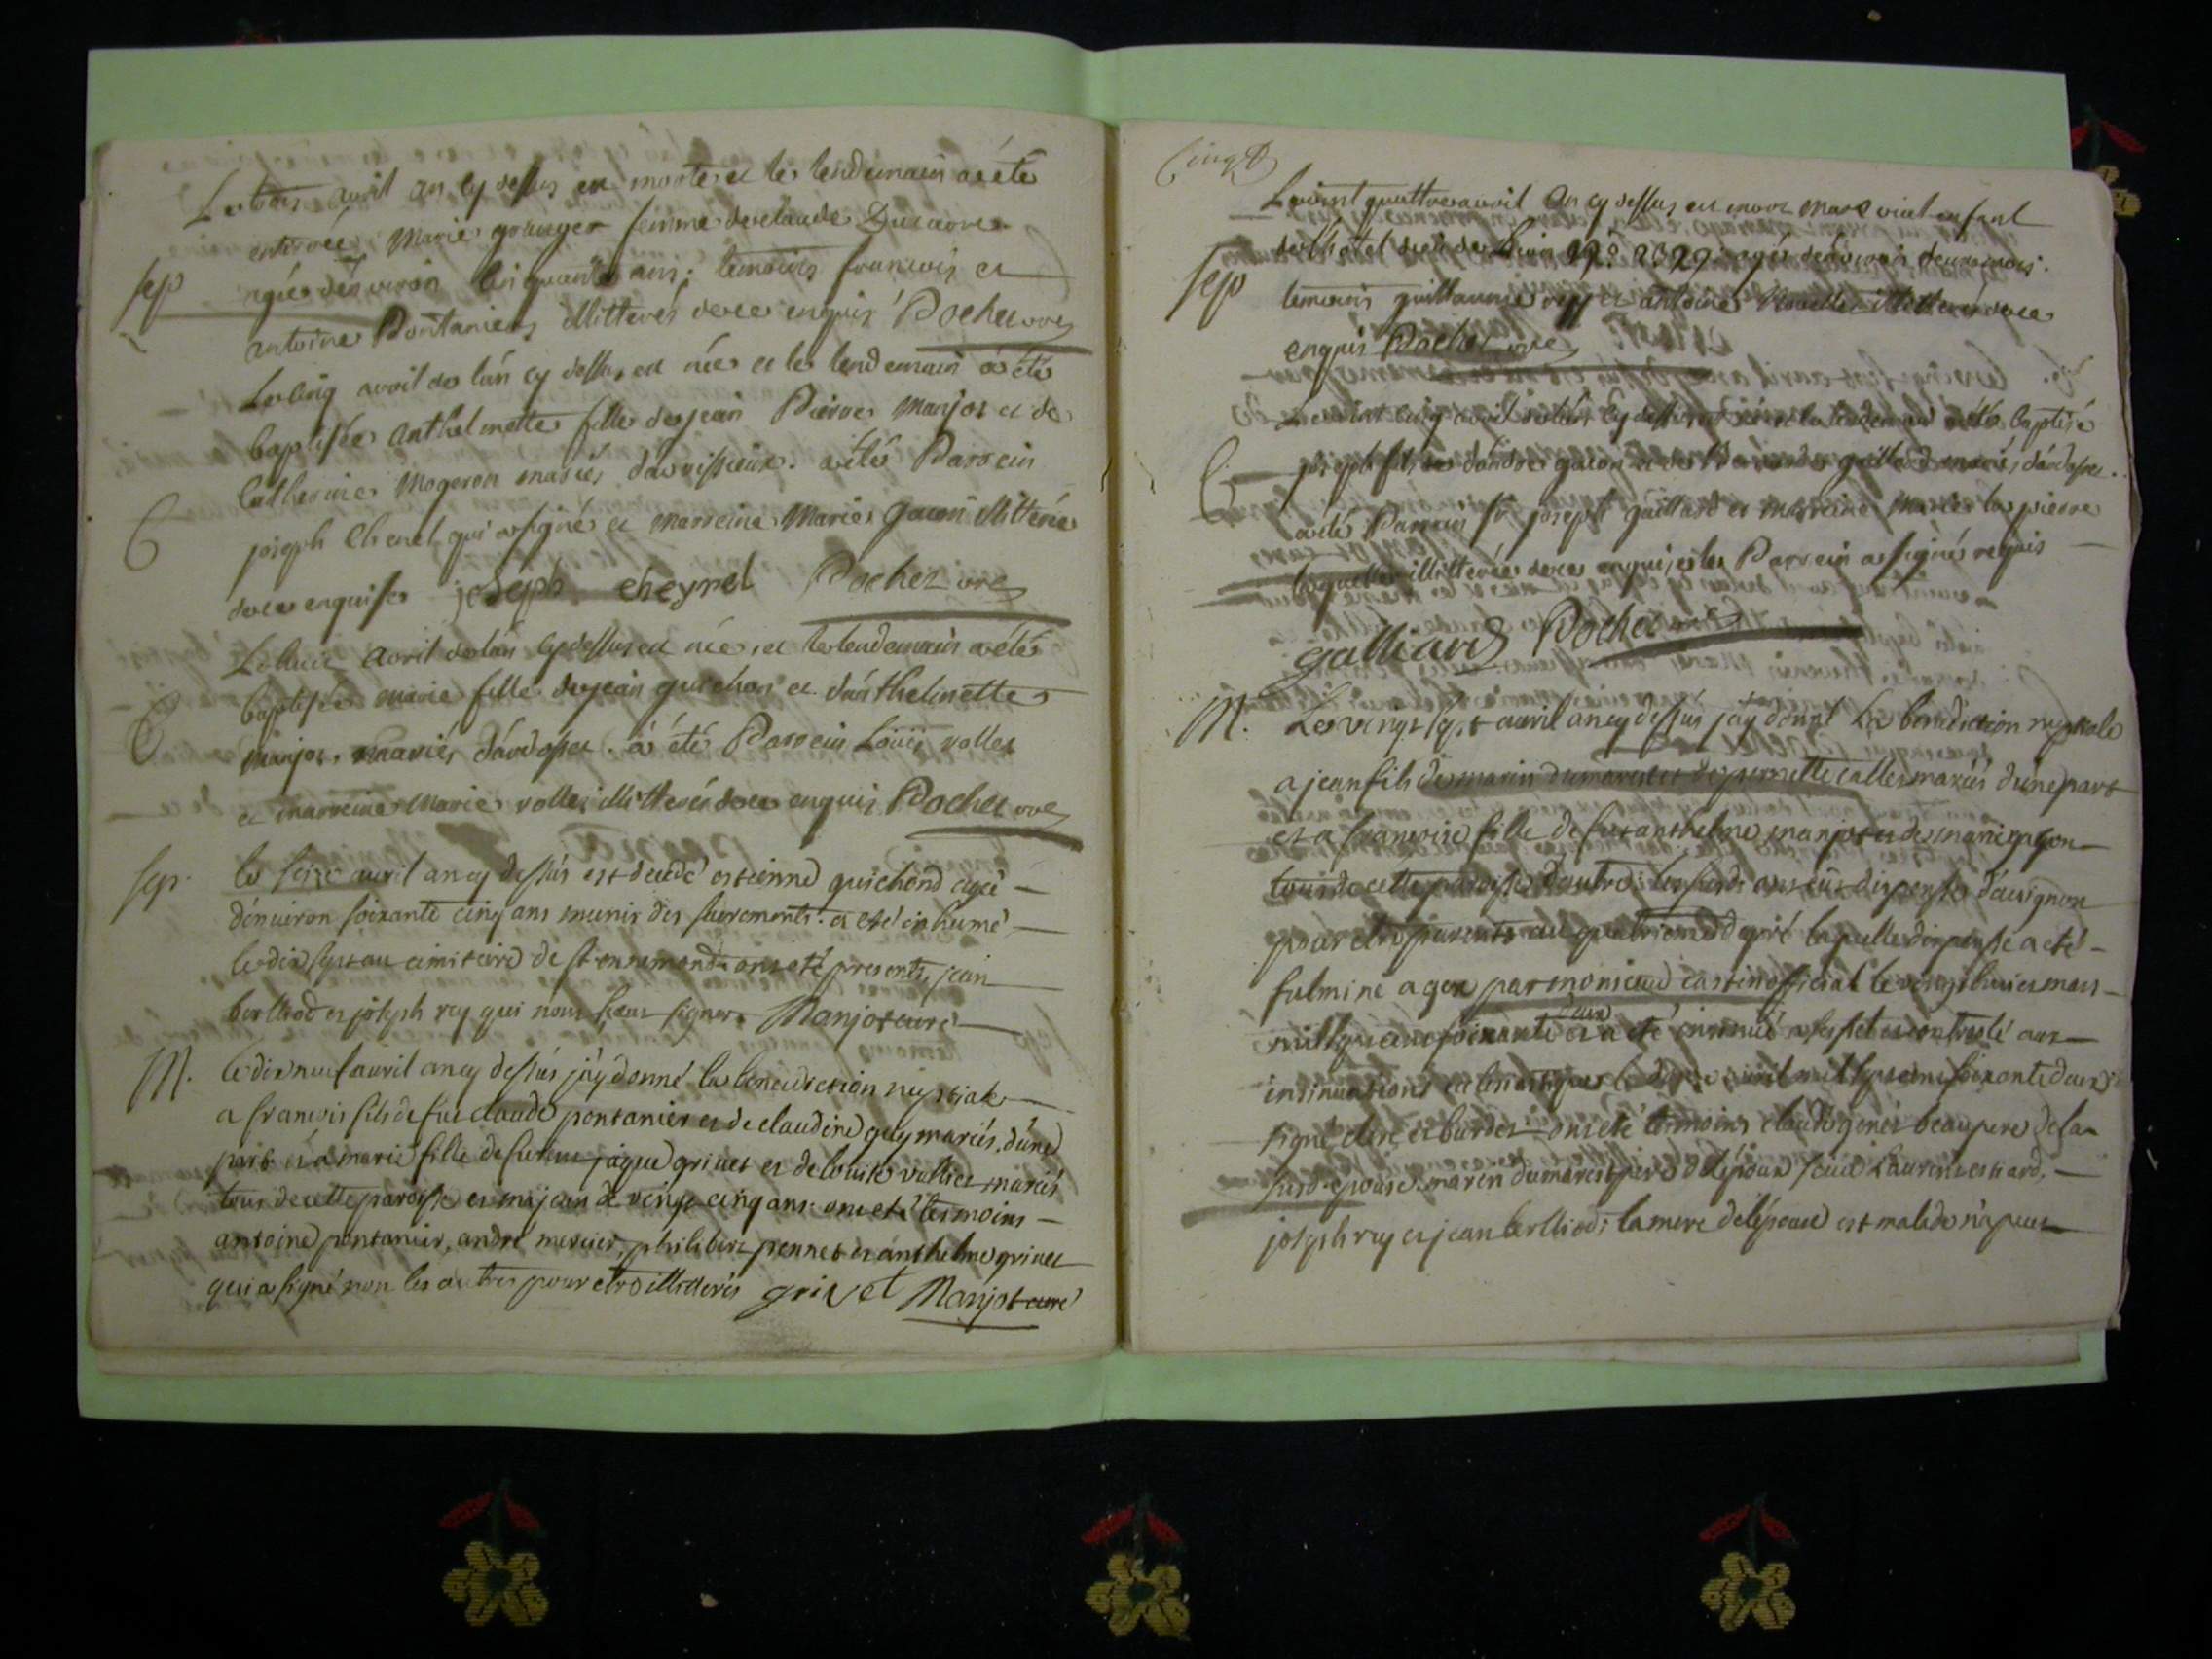 Le trois avril an cy dessus est morte et le lendemain a été
enterrée Marie granger femme de claude Ducarre
sep
agée d'environ cinquante ans; temoins francois et
antoine Pontaniers illitterés de ce enquis Pochet vre
Le cinq avril de l'an cy dessus est née et le lendemain a été
baptisée anthelmette fille de jean Pierre Manjot et de
Catherine Mogeron mariés d'avoissieux. a été Parrein
B
joseph Chenel qui a signé et marreine Marie gacon illitterée
de ce enquise joseph cheynel Pochet vre
Le huit avril de l'an cy dessus est née, et le lendemain a été
baptisée marie fille de jean guichon et d'anthelmette
B
Manjot, mariés d'ardosset. a été Parrein Louis vollet
et marreine Marie vollet illitterés de ce enquis Pochet vre
sep. le seize avril an cy dessus est decedé estienne guichond agé
d'environ soixante cinq ans munir des sacrements. a eté inhumé
le dix sept au cimitaire de st ennemond. ont eté presents, jean
berlliod et joseph rey qui n'ont sceus signer. Manjot curé
M. le dix neuf avril an cy dessus j'ay donné la benediction nuptiale
a francois fils de fut claude pontanier et de claudine guy mariés, d'une
part et a marie fille de fut jaque grivet et de louise vollet mariés
tous de cette paroisse et majeurs de vingt cinq ans. ont eté tesmoins
antoine pontanier, andré mercier, philibert pennet et anthelme grivet
qui a signé non les autres pour etre illitterés grivet Manjot curé
Cinq
Le vint quattre avril an cy dessus est mort Marc vial enfant
de l'hotel dieu de Lion n° 2329 agé d'environ deux mois.
sep
temoins guillaume rey et antoine illitterés de ce
enquis Pochet vre
Le vint cinq avril de l'an cy dessus est né et le lendemain a été baptisé
B
joseph fils d'andré gacon et de Bernarde gaillard mariés, d'ardosset.
a été Parrein sr joseph gaillard et marreine Marie la pierre
laquelle illitterée de ce enquise, le Parrein a signé requis
galliard Pochet vre
M. Le vingt sept avril an cy dessus j'ay donné La benediction nuptiale
a jean fils de marin dumarest et de pernette callet mariés d'une part
et a francoise fille de fut anthelme manjot et de marie gacon
tous de cette paroisse d'autre: les susds. ont eu dispense d'avignon
pour etre parents au quatrieme degré laquelle dispense a eté
fulminé a gex par monsieur castin official le vingt huit mars
mil sept cent soixante deux et a eté insinué a et controlé aux
insinuations ecclesiastiques le avril mil sept cent soixante deux
signé clere et burdet ont eté tesmoins claude genet beaupere de la
susd. epouse. marin dumarest pere de l'epoux laurent
joseph rey et jean berlliod; la mere de l'epouse est malade n'a peut